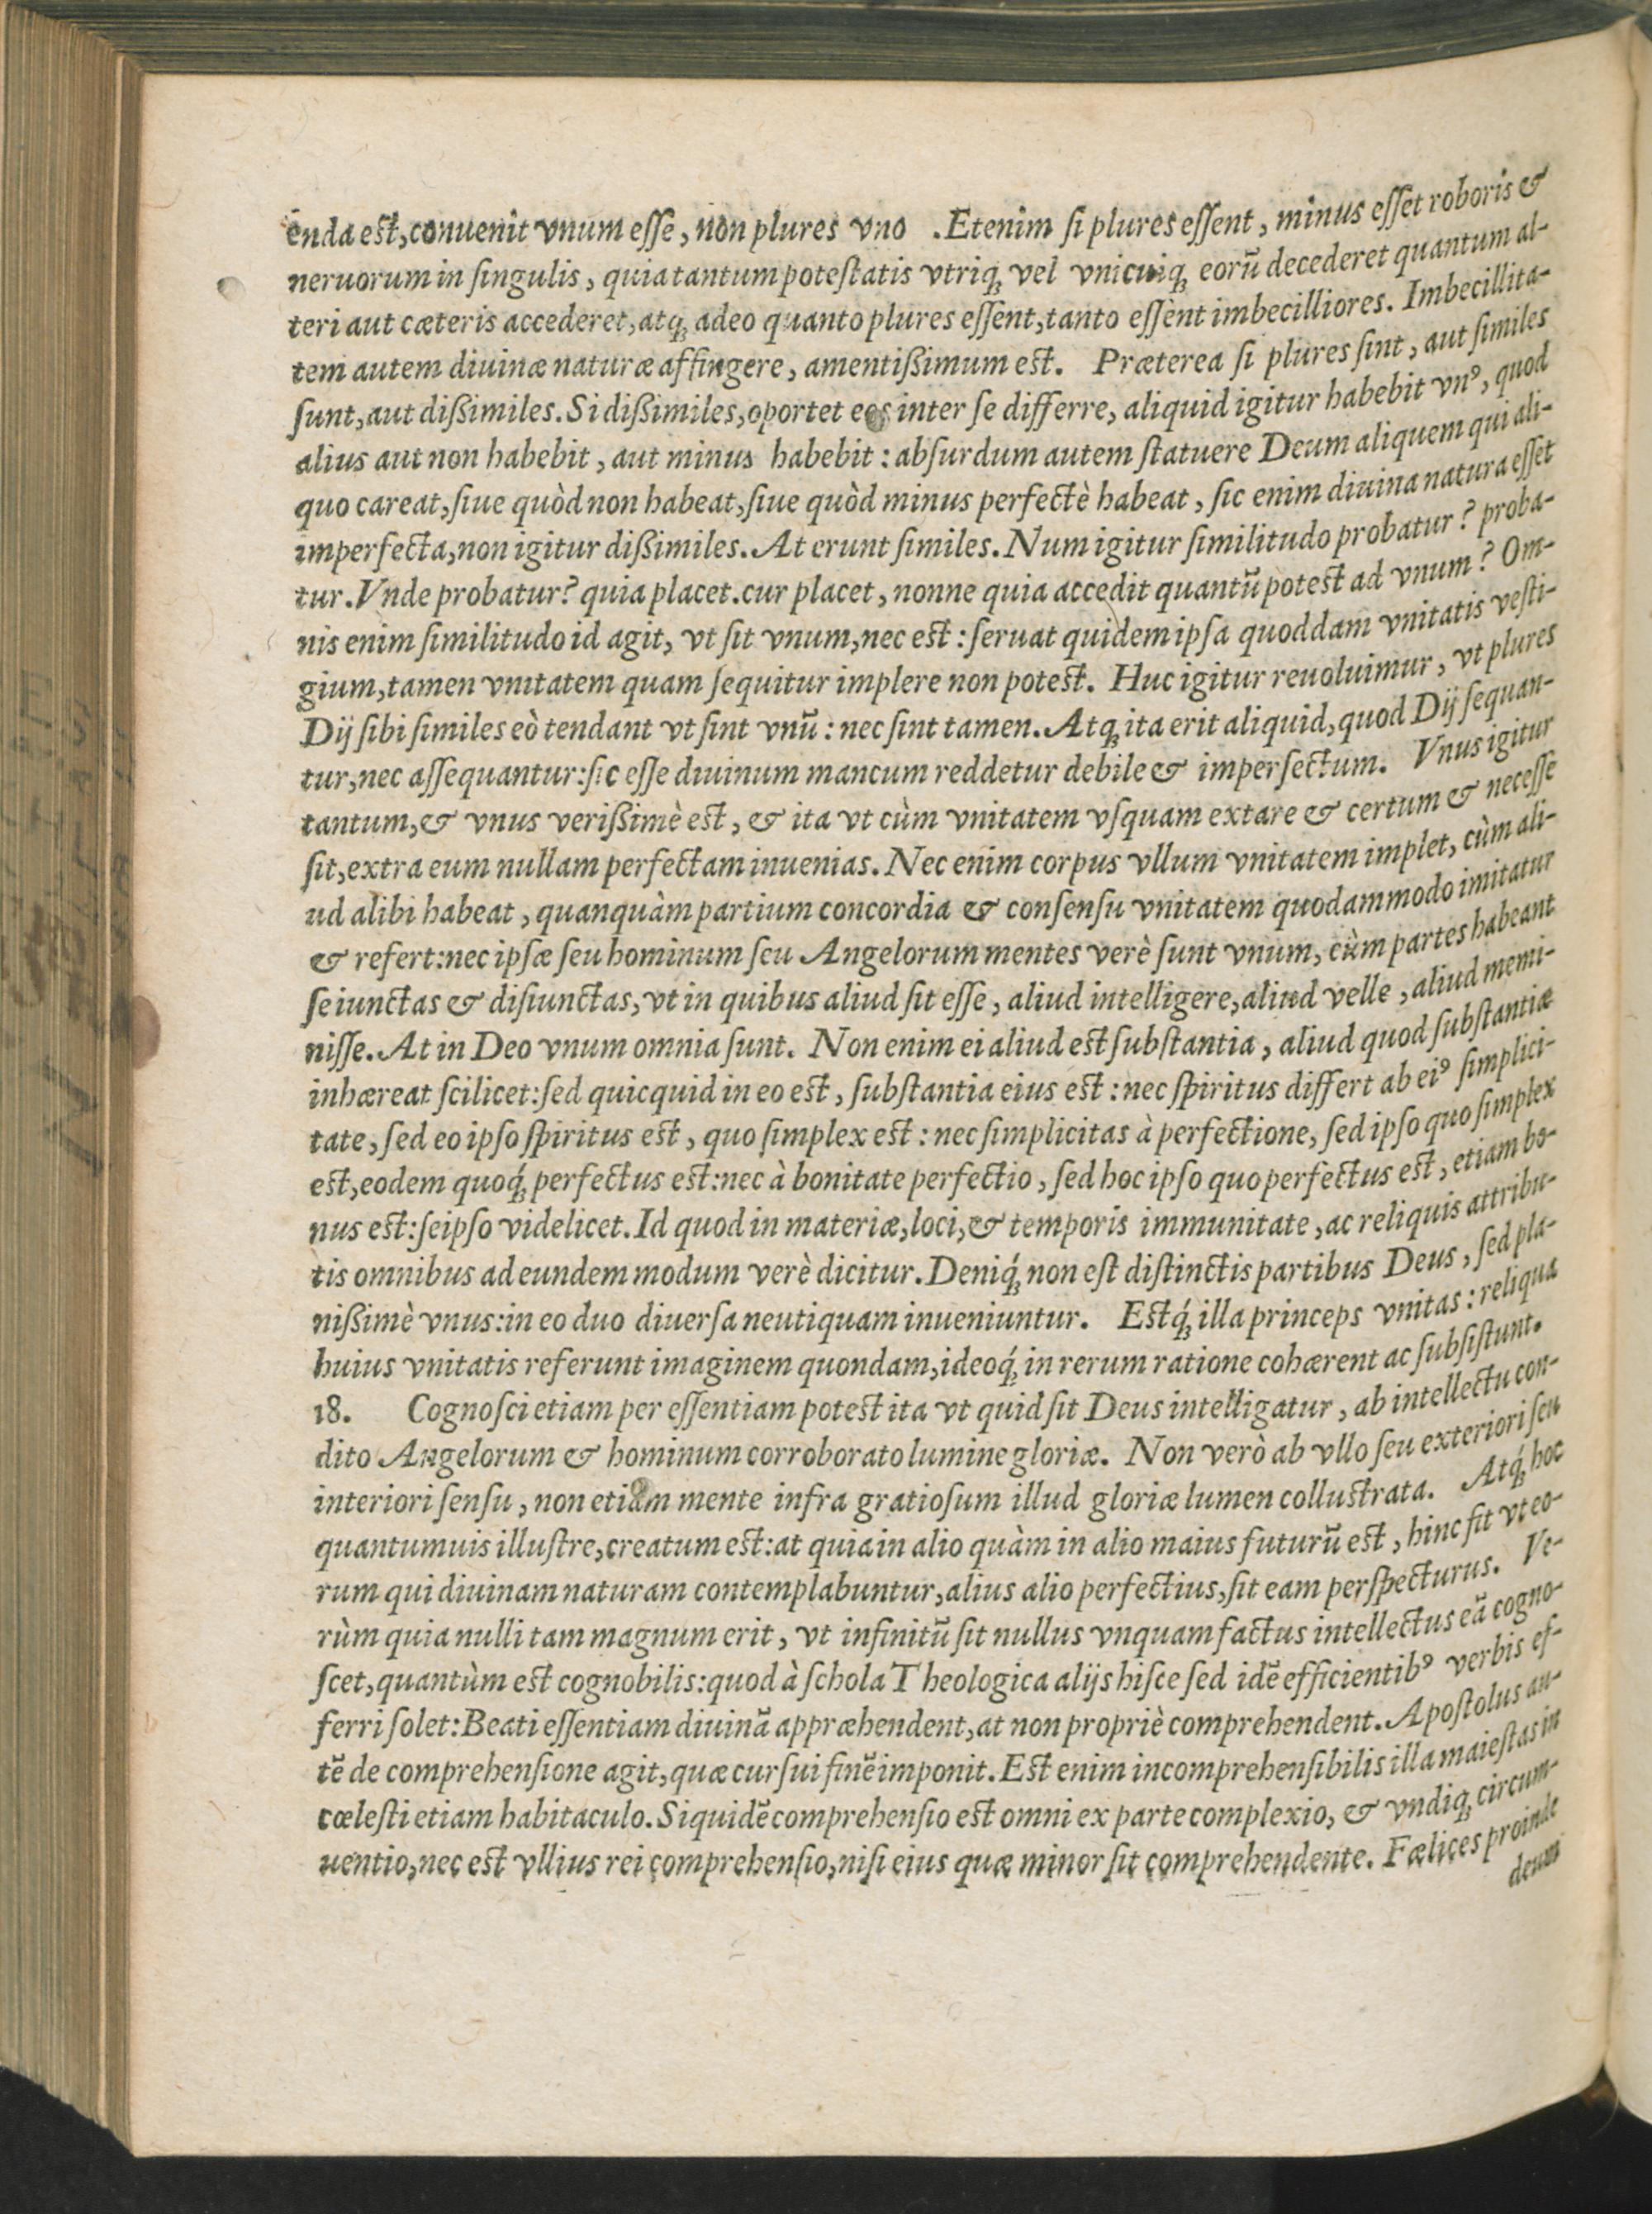 enda est, conuenit vnum esse, non plures vno . Etenim si plures essent, minus esset roboris &
neruorum in singulis, quia tantum potestatis vtriq; vel vnicuiq; eorū decederet quantum al-
teri aut cæteris accederet, atq; adeo quanto plures essent, tanto essent imbecilliores. Imbecillita-
tem autem diuinæ naturæ affingere, amentißimum est. Præterea si plures sint, aut similes
sunt, aut dißimiles. Si dißimiles, oportet eos inter se differre, aliquid igitur habebit vnꝰ, quod
alius aut non habebit, aut minus habebit: absurdum autem statuere Deum aliquem qui ali-
quo careat, siue quòd non habeat, siue quòd minus perfectè habeat, sic enim diuina natura esset
imperfecta, non igitur dißimiles. At erunt similes. Num igitur similitudo probatur? proba-
tur. Vnde probatur? quia placet. cur placet, nonne quia accedit quantū potest ad vnum? Om-
nis enim similitudo id agit, vt sit vnum, nec est: seruat quidem ipsa quoddam vnitatis vesti-
gium, tamen vnitatem quam sequitur implere non potest. Huc igitur reuoluimur, vt plures
Dij sibi similes eò tendant vt sint vnū: nec sint tamen. Atq; ita erit aliquid, quod Dij sequan-
tur, nec assequantur: sic esse diuinum mancum reddetur debile & imperfectum. Vnus igitur
tantum, & vnus verißimè est, & ita vt cùm vnitatem vsquam extare & certum & necesse
sit, extra eum nullam perfectam inuenias. Nec enim corpus vllum vnitatem implet, cùm ali-
ud alibi habeat, quanquàm partium concordia & consensu vnitatem quodammodo imitatur
& refert: nec ipsæ seu hominum seu Angelorum mentes verè sunt vnum, cùm partes habeant
seiunctas & disiunctas, vt in quibus aliud sit esse, aliud intelligere, aliud velle, aliud memi-
nisse. At in Deo vnum omnia sunt. Non enim ei aliud est substantia, aliud quod substantiæ
inhæreat scilicet: sed quicquid in eo est, substantia eius est: nec spiritus differt ab eiꝰ simplici-
tate, sed eo ipso spiritus est, quo simplex est: nec simplicitas à perfectione, sed ipso quo simplex
est, eodem quoq́; perfectus est: nec à bonitate perfectio, sed hoc ipso quo perfectus est, etiam bo-
nus est: seipso videlicet. Id quod in materiæ, loci, & temporis immunitate, ac reliquis attribu-
tis omnibus ad eundem modum verè dicitur. Deniq́; non est distinctis partibus Deus, sed pla-
nißimè vnus: in eo duo diuersa neutiquam inueniuntur. Estq́; illa princeps vnitas: reliqua
huius vnitatis referunt imaginem quondam, ideoq́; in rerum ratione cohærent ac subsistunt.
18. Cognosci etiam per essentiam potest ita vt quid sit Deus intelligatur, ab intellectu con-
dito Angelorum & hominum corroborato lumine gloriæ. Non verò ab vllo seu exteriori seu
interiori sensu, non etiam mente infra gratiosum illud gloriæ lumen collustrata. Atq́; hoc
quantumuis illustre, creatum est: at quia in alio quàm in alio maius futurū est, hinc fit vt eo-
rum qui diuinam naturam contemplabuntur, alius alio perfectius, sit eam perspecturus. Ve-
rùm quia nulli tam magnum erit, vt infinitū sit nullus vnquam factus intellectus eā cogno-
scet, quantùm est cognobilis: quod à schola Theologica alijs hisce sed idē efficientibꝰ verbis ef-
ferri solet: Beati essentiam diuinā appræhendent, at non propriè comprehendent. Apostolus au-
tē de comprehensione agit, quæ cursui finē imponit. Est enim incomprehensibilis illa maiestas in
cœlesti etiam habitaculo. Siquidē comprehensio est omni ex parte complexio, & vndiq; circum-
uentio, nec est vllius rei comprehensio, nisi eius quæ minor sit comprehendente. Fælices proinde
deum